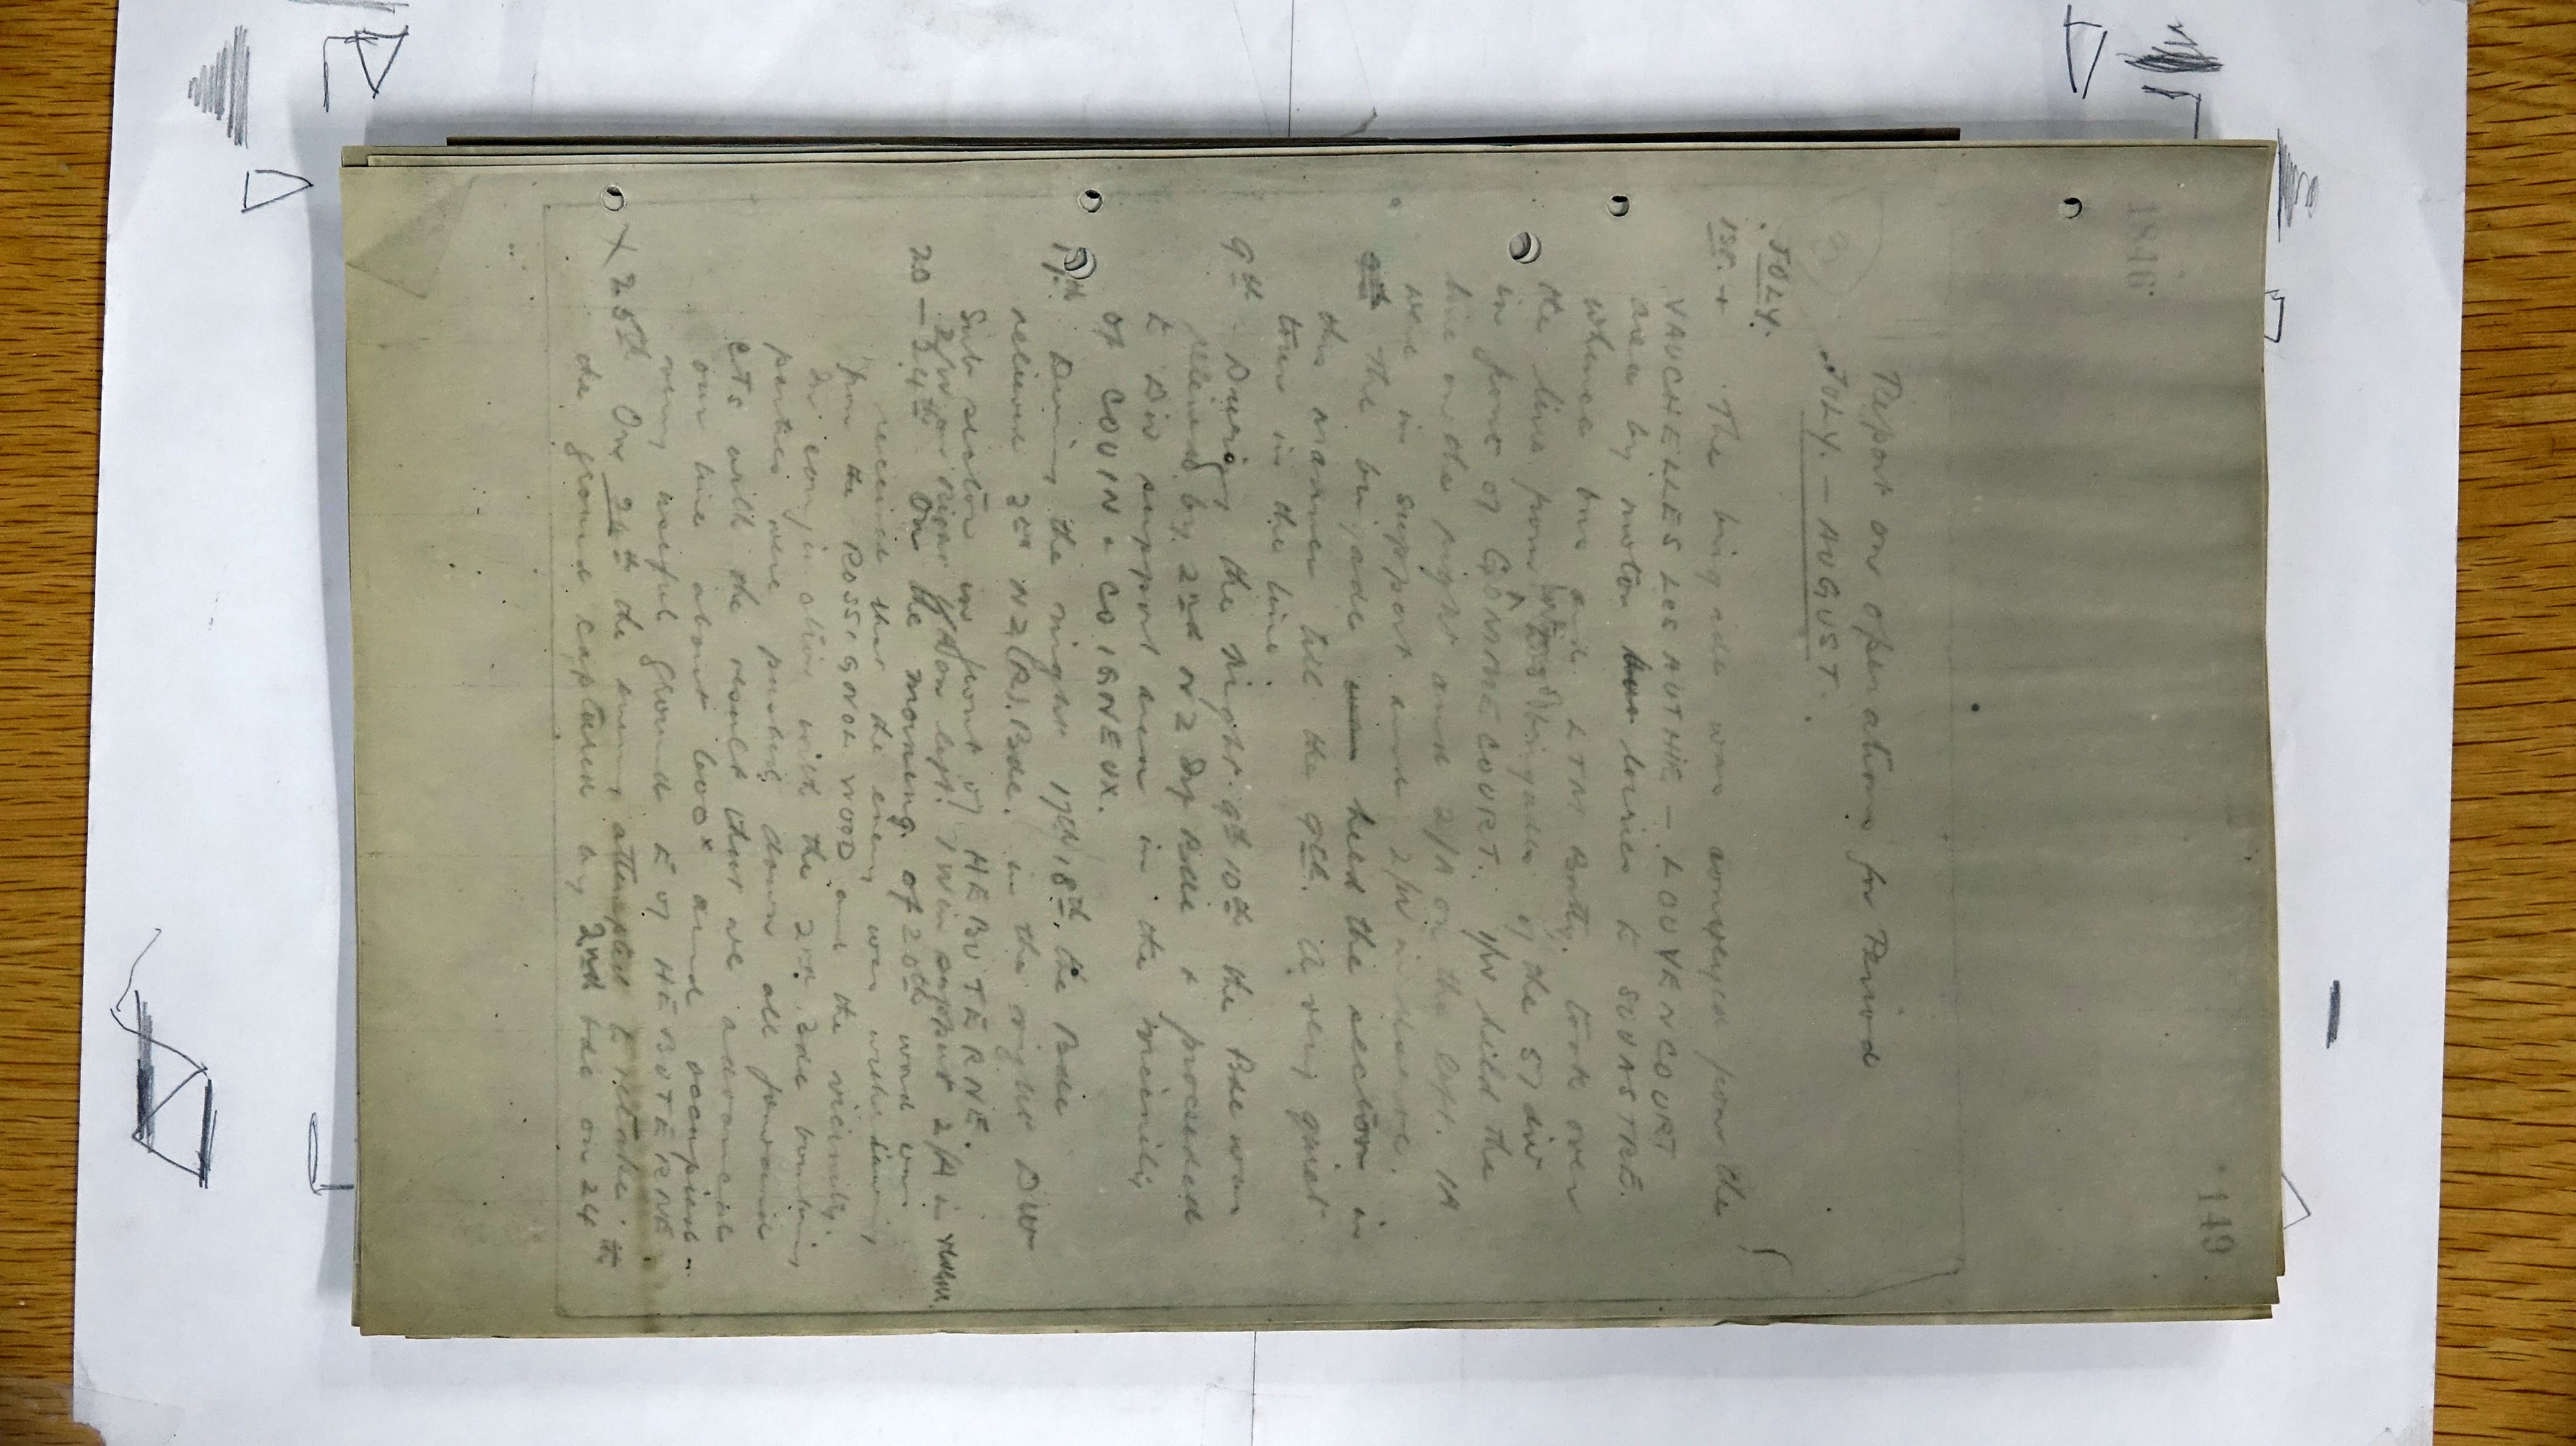 1846
149
Report on operations for Period
JULY. — AUGUST.
JULY.
1st. + The brigade was conveyed from the
VAUCHELLES LES AUTHIE — LOUVENCOURT
area by motor lorries to SOUASTRE.
whence bns and LTM Batty. took over
the line from two brigades of the 57 div
in front of GOMMECOURT. 1/W held the
line on the right and 2/A on the left. 1A
were in support and 2/W in reserve.
9th The brigade held the section in
this manner till the 9th. A very quiet
tour in the line
9th. During the night. 9th 10th the Bde was
relieved by 2nd NZ Inf Bde & proceeded
to Div support area in the vicinity
of COUIN & COIGNEUX.
17th During the night 17th 18th. the Bde
relieved 3rd NZ(R).Bde. in the right Div
Sub sector in front of HEBUTERNE.
2/W on right 1/A on left. 1W in support 2/A in reserve.
20 — 24th On the morning of 20th word was
received that the enemy were withdrawing
from the ROSSIGNOL WOOD and the vicinity.
In conjunction with the 2nd Bde bombing
parties were pushed down all forward
CTs with the result that we advanced
our line about 600x and occupied
very useful ground E of HEBUTERNE.
X 25th On 24th the enemy attempted to retake
the ground captured by 2nd bde on 24th